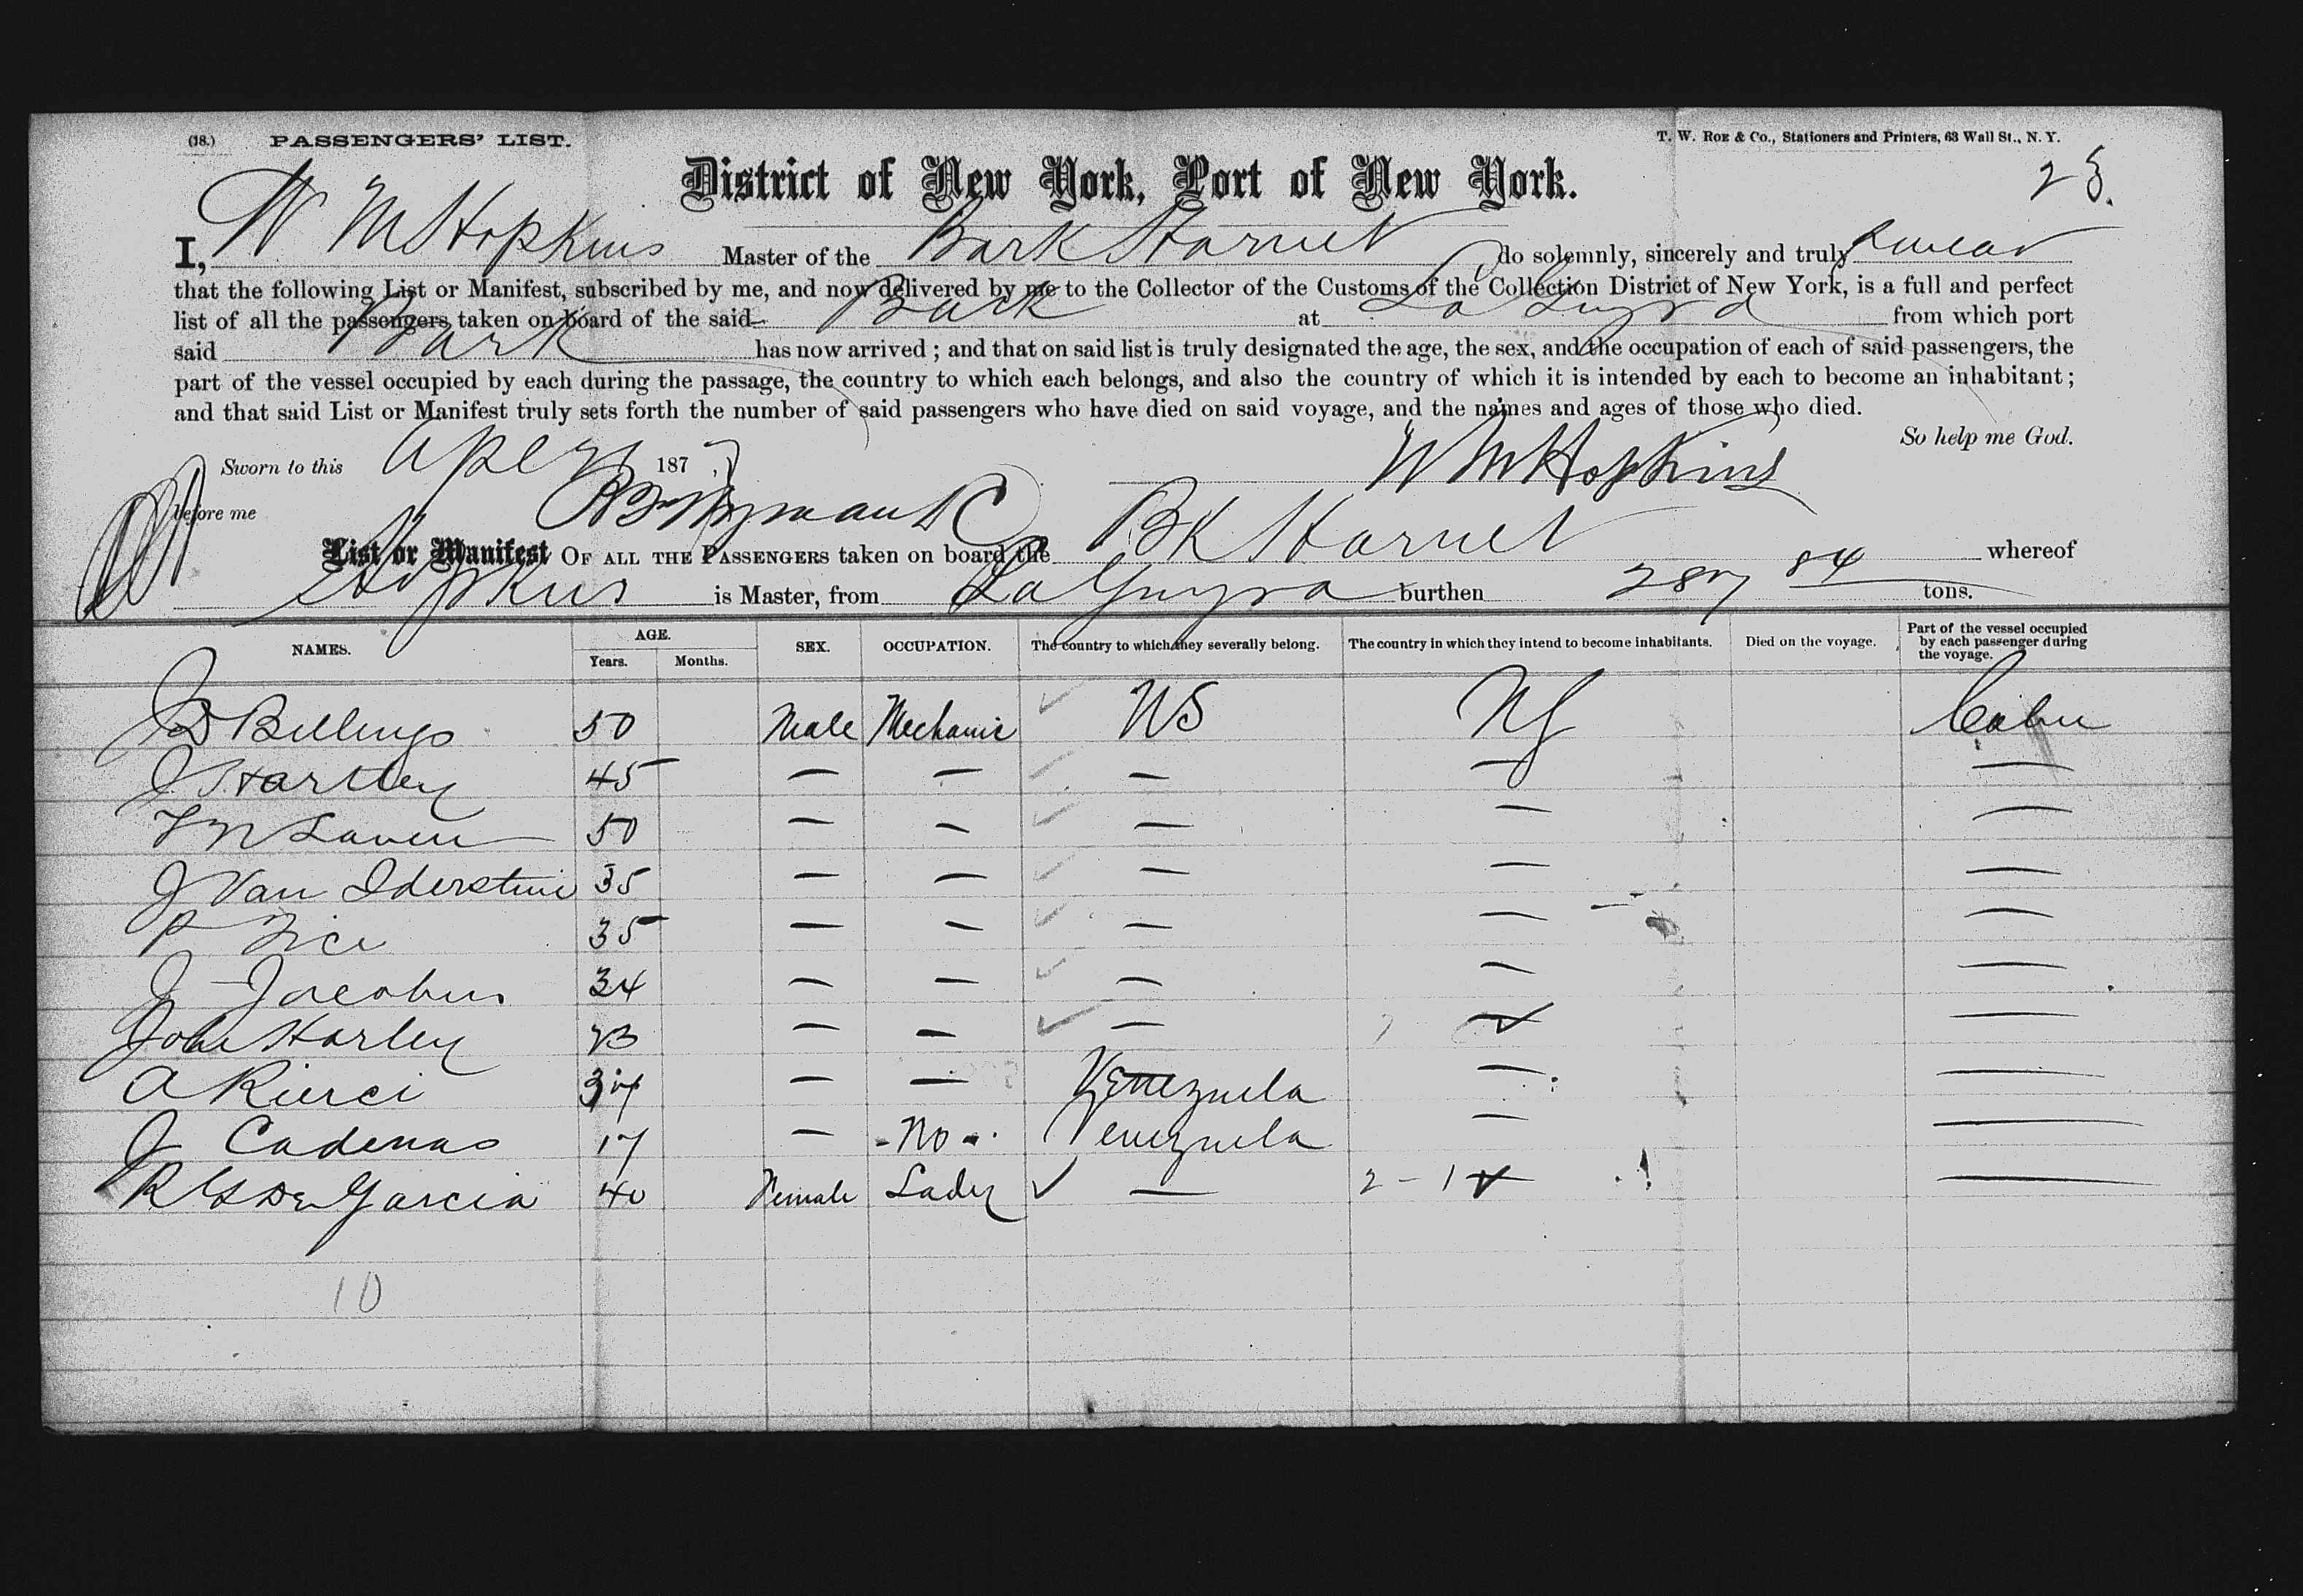 (18.) PASSENGERS' LIST. T. W. ROE & Co., Stationers and Printers, 63 Wall St., N. Y.
District of New York, Port of New York.
I, W M Hopkins Master of the Bark Hornet do solemnly, sincerely and truly swear
that the following List or Manifest, subscribed by me, and now delivered by me to the Collector of the Customs of the Collection District of New York, is a full and perfect
list of all the passengers taken on board of the said Bark at La Guyra from which port
said Bark has now arrived ; and that on said list is truly designated the age, the sex, and the occupation of each of said passengers, the
part of the vessel occupied by each during the passage, the country to which each belongs, and also the country of which it is intended by each to become an inhabitant ;
and that said List or Manifest truly sets forth the number of said passengers who have died on said voyage, and the names and ages of those who died.
So help me God.
Sworn to this 187 W M Hopkins
before me
List or Manifest OF ALL THE PASSENGERS taken on board the Bk Hornet whereof
Hopkins is Master, from La Guyra burthen 287 84 tons.
NAMES. AGE. Years. Months. SEX. OCCUPATION. The country to which they severally belong. The country in which they intend to become inhabitants. Died on the voyage. Part of the vessel occupied by each passenger during the voyage.
Billings 50 Male Mechanic US US Cabin
J Hartley 45 — — — — —
50 — — — — —
J Van Iderstine 35 — — — — —
35 — — — — —
J Jacobus 34 — — — — —
John Harley — — — — —
A — — Venezuela — —
J Cadenas 17 — - No - Venezuela — —
De Garcia 40 Female Lady — 2 - 1 —
10